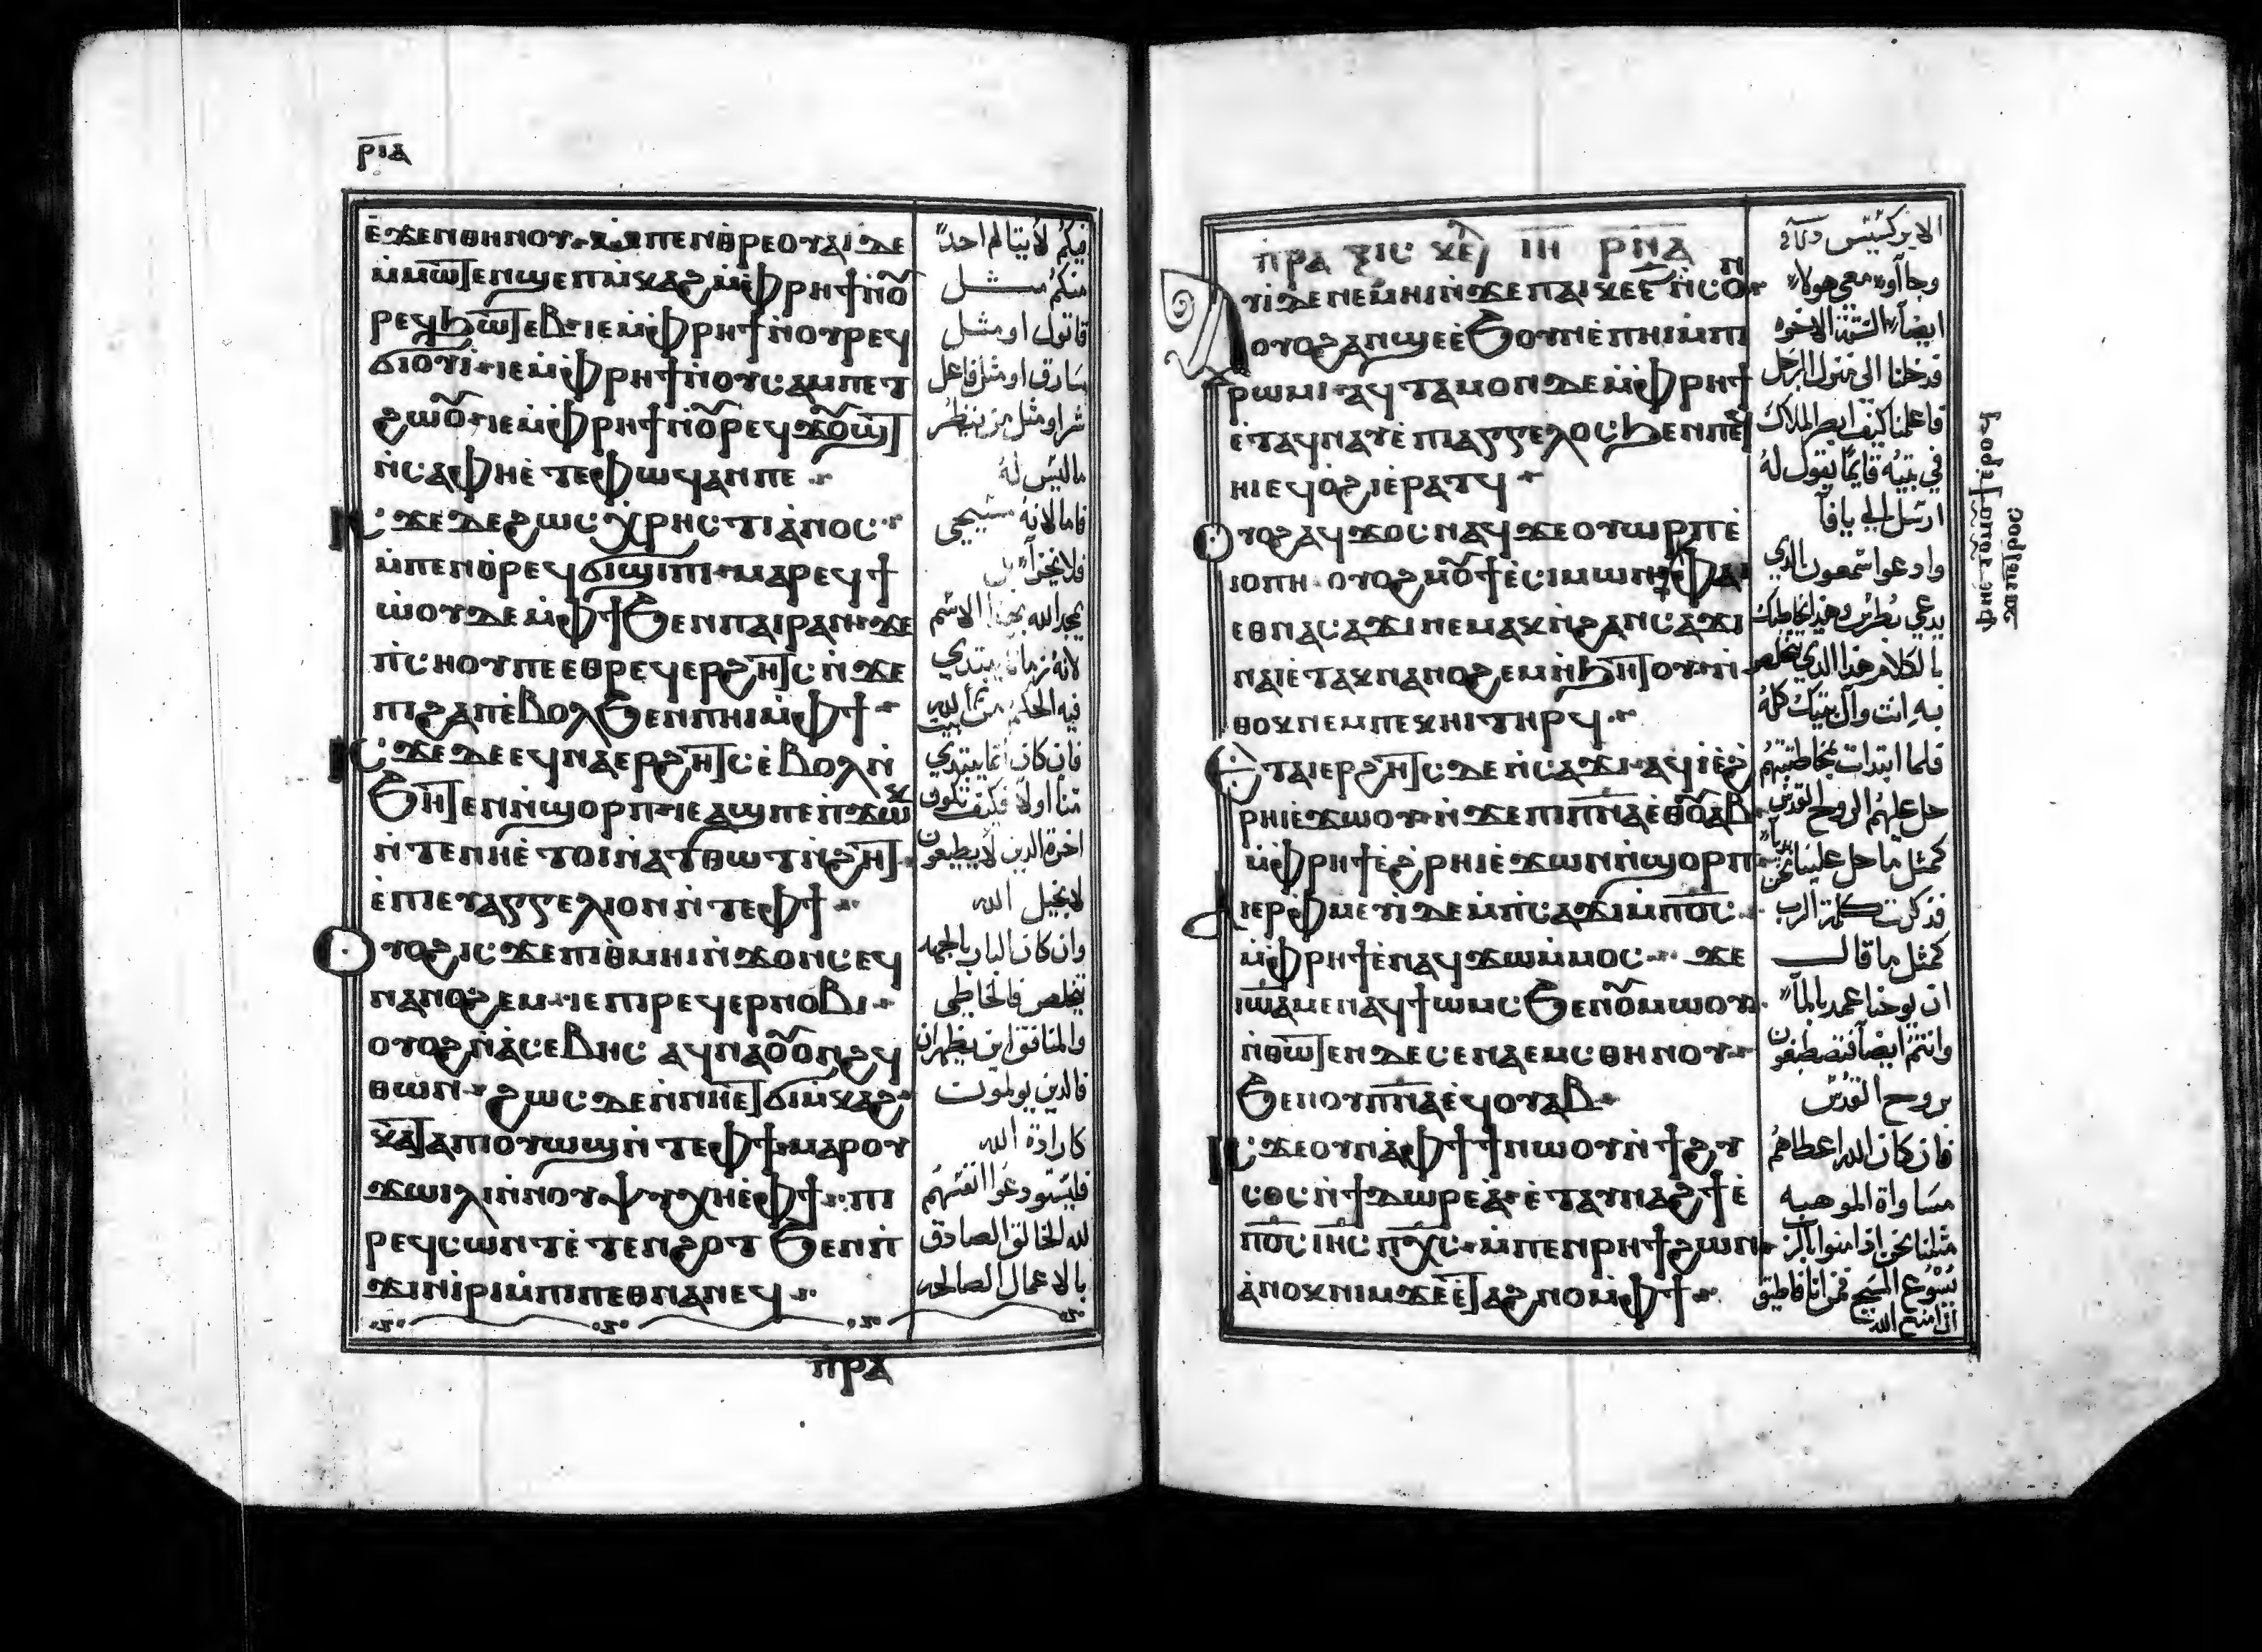 ⲣⲓⲇ
ⲉ̇ϫⲉⲛⲑⲏⲛⲟⲩ
ⲙ̇ⲡⲉⲛⲑⲣⲉⲟⲩⲁⲓ ⲇⲉ
ⲙ̇ⲙⲱⲧⲉⲛ ϣⲉⲡⲙ̇ⲕⲁϩ ⲙ̇ⲫⲣⲏϯ ⲛ̇ⲟⲩ
ⲣⲉϥϧⲱⲧⲉⲃ ⲓⲉ ⲙ̇ⲫⲣⲏϯ ⲛ̇ⲟⲩⲣⲉϥ
ϭⲓⲟⲩⲓ̇ ⲓⲉ ⲙ̇ⲫⲣⲏϯ ⲛ̇ⲟⲩⲥⲁⲙⲡⲉⲧ
ϩⲱⲟⲩ ⲓⲉ ⲙ̇ⲫⲣⲏϯ ⲛ̇ⲟⲩⲣⲉϥϫⲟⲩϣⲧ
ⲛ̇ⲥⲁⲫⲏⲉ̇ⲧⲉⲫⲱϥ ⲁⲛ ⲡⲉ
ⲓⲥϫⲉ ⲇⲉ ϩⲱⲥ ⲭⲣⲏⲥⲧⲓⲁⲛⲟⲥ
ⲙ̇ⲡⲉⲛⲑⲣⲉϥϭⲓϣⲓⲡⲓ ⲙⲁⲣⲉϥϯ
ⲱ̇ⲟⲩ ⲇⲉ ⲙ̇ⲫϯ ϧⲉⲛ ⲡⲁⲓⲣⲁⲛ ϫⲉ
ⲡ̇ⲥⲏⲟⲩ ⲡⲉ ⲉⲑⲣⲉϥⲉⲣϩⲏⲧⲥ ⲛ̇ϫⲉ
ⲡⲓϩⲁⲡ ⲉ̇ⲃⲟⲗϧⲉⲛ ⲡⲏⲓ ⲙ̇ⲫϯ
ⲓⲥϫⲉ ⲇⲉ ⲉϥⲛⲁⲉⲣϩⲏⲧⲥ ⲉ̇ⲃⲟⲗ ⲛ̇
ϧⲏⲧⲉⲛ ⲛ̇ϣⲟⲣⲡ ⲓⲉ ⲁϣ ⲡⲉ ⲡ̇ϫⲱⲕ
ⲛ̇ⲧⲉ ⲛⲏⲉ̇ⲧⲟⲓ ⲛ̇ⲁⲧⲑⲱⲧ ⲛ̇ϩⲏⲧ
ⲉ̇ⲡⲓⲉⲩⲁⲅⲅⲉⲗⲓⲟⲛ ⲛ̇ⲧⲉⲫϯ
ⲟⲩⲟϩ ⲓⲥϫⲉ ⲡⲓⲑⲙⲏⲓ ⲛ̇ϫⲟⲛⲥ ⲉϥ
ⲛⲁⲛⲟϩⲉⲙ ⲓⲉ ⲡⲓⲣⲉϥⲉⲣⲛⲟⲃⲓ
ⲟⲩⲟϩ ⲛ̇ⲁⲥⲉⲃⲏⲥ ⲁϥⲛⲁⲟⲩⲟⲛϩϥ
ⲑⲱⲛ ϩⲱⲥ ⲇⲉ ⲛ̇ⲛⲏⲉⲧϭⲓⲙ̇ⲕⲁϩ
ⲕⲁⲧⲁ ⲡⲓⲟⲩⲱϣ ⲛ̇ⲧⲉⲫϯ ⲙⲁⲣⲟⲩ
ϫⲱⲓⲗⲓ ⲛ̇ⲛⲟⲩⲯⲩⲭⲏ ⲉ̇ⲫϯ ⲡⲓ
ⲣⲉϥⲥⲱⲛⲧ ⲉ̇ⲧⲉⲛϩⲟⲧ ϧⲉⲛ ⲡ̇
ϫⲓⲛⲓ̇ⲣⲓ ⲙ̇ⲡⲓⲡⲉⲑⲛⲁⲛⲉϥ
ⲡⲣⲁ
فيكم لا يتالم احداً
منكم مثل
قاتول او مثل
سارق او مثل فاعل
شر او مثل من ينظر
ما ليس له
فاما لانه مسيحي
فلا يخزاً بل
يمجد الله بهذا الاسم
لانه زمانا يبتدي
فيه الحكم من بيت الله
فان كان انما يبتدي
منا اولاً فكيف تكون
اخرة الذين لا يطيعون
لانجيل الله
وان كان البار بالجهد
يخلص فالخاطي
والمنافق اين يظهران
فالذين يولموت
كارادة الله
فليستودعوا انفسهم
لله الخالق الصادق
بالاعمال الصالحه
ⲡⲣⲁⲝⲓⲥ ⲕⲉⲫ ⲓⲏ ⲣⲛⲁ
ⲁⲩⲓ̇ ⲇⲉ ⲛⲉⲙⲏⲓ ⲛ̇ϫⲉ ⲡⲁⲓⲕⲉⲋ ⲛ̇ⲥⲟⲛ
ⲟⲩⲟϩ ⲁⲛϣⲉ ⲉ̇ϧⲟⲩⲛ ⲉ̇ⲡⲏⲓ ⲙ̇ⲡⲓ
ⲣⲱⲙⲓ ⲁϥⲧⲁⲙⲟⲛ ⲇⲉ ⲙ̇ⲫⲣⲏϯ
ⲉ̇ⲧⲁϥⲛⲁⲩ ⲉ̇ⲡⲓⲁⲅⲅⲉⲗⲟⲥ ϧⲉⲛ ⲡⲉϥ
ⲏⲓ ⲉϥⲟ̇ϩⲓ ⲉ̇ⲣⲁⲧϥ
ⲟⲩⲟϩ ⲁϥϫⲟⲥ ⲛⲁϥ ϫⲉ ⲟⲩⲱⲣⲡ ⲉ̇
ⲓⲟⲡⲏ ⲟⲩⲟϩ ⲙⲟⲩϯ ⲉ̇ⲥⲓⲙⲱⲛ ⲫⲁⲓ
ⲉⲑⲛⲁⲥⲁϫⲓ ⲛⲉⲙⲁⲕ ⲛ̇ϩⲁⲛⲥⲁϫⲓ
ⲛⲁⲓ ⲉ̇ⲧⲁⲕⲛⲁⲛⲟϩⲉⲙ ⲛ̇ϧⲏⲧⲟⲩ ⲛ̇
ⲑⲟⲕ ⲛⲉⲙ ⲡⲉⲕⲏⲓ ⲧⲏⲣϥ
ⲉ̇ⲧⲁⲓⲉⲣϩⲏⲧⲥ ⲇⲉ ⲛ̇ⲥⲁϫⲓ ⲁϥⲓ̇ ⲉ̇ϩ̇
ⲣⲏⲓ ⲉ̇ϫⲱⲟⲩ ⲛ̇ϫⲉ ⲡⲓⲡⲛⲁ ⲉⲑⲟⲩⲁⲃ
ⲙ̇ⲫⲣⲏϯ ⲉ̇ϩ̇ⲣⲏⲓ ⲉ̇ϫⲱⲛ ⲛ̇ϣⲟⲣⲡ
ⲁⲓⲉⲣⲫ̇ⲙⲉⲩⲓ̇ ⲇⲉ ⲙ̇ⲡ̇ⲥⲁϫⲓ ⲙ̇ⲡⲟⲥ
ⲙ̇ⲫⲣⲏϯ ⲉ̇ⲛⲁϥϫⲱ ⲙ̇ⲙⲟⲥ ϫⲉ
ⲓⲱⲁ ⲙⲉⲛ ⲁϥϯⲱⲙⲥ ϧⲉⲛ ⲟⲩⲙⲱⲟⲩ
ⲛ̇ⲑⲱⲧⲉⲛ ⲇⲉ ⲥⲉⲛⲁⲉⲙⲥ ⲑⲏⲛⲟⲩ
ϧⲉⲛ ⲟⲩⲡⲛⲁ ⲉϥⲟⲩⲁⲃ
ⲓⲥϫⲉ ⲟⲩⲛ ⲁ̇ⲫϯ ϯ ⲛⲱⲟⲩ ⲛ̇ϯϩⲩ
ⲥⲟⲥ ⲛ̇ϯⲇⲱⲣⲉⲁ̇ ⲉ̇ⲧⲁⲩⲛⲁϩϯ ⲉ̇
ⲡⲟⲥ ⲓⲏⲥ ⲡⲭⲥ ⲙ̇ⲡⲉⲛⲣⲏϯ ϩⲱⲛ
ⲁ̇ⲛⲟⲕ ⲛⲓⲙ ϫⲉ ⲉ̇ⲧⲁϩⲛⲟ ⲙ̇ⲫϯ
ⲫⲏⲉ̇ⲧⲟⲩⲙⲟⲩϯ ⲉ̇ⲣⲟϥ
ϫⲉ ⲡⲉⲧⲣⲟⲥ
الابركسيس
وجااوا معي هولاء
ايضاً الستة الاخوه
فدخلنا الى منزل الرجل
فاعلمنا كيف ابصر الملاك
في بيته قايماً يقول له
ارسل الي يافا
وادعوا سمعون الذي
يدعي بطرس وهذا يخاطبك
بالكلام هذا الذي تخلص
به انت وآل بيتك كله
فلما ابتدات بمخاطبتهم
حل عليهم الروح القدس
كمثل ما حل علينا نحن بدياً
فذكرت كلمة الرب
كمثل ما قال
ان يوحنا عمد بالماً
وانتم ايضاً فتصطبغون
بروح القدس
فان كان الله اعطاهم
مساواة الموهبه
مثلنا نحن اذ امنوا بالرب
يسوع المسيح فمن انا فاطيق
ان امنع الله